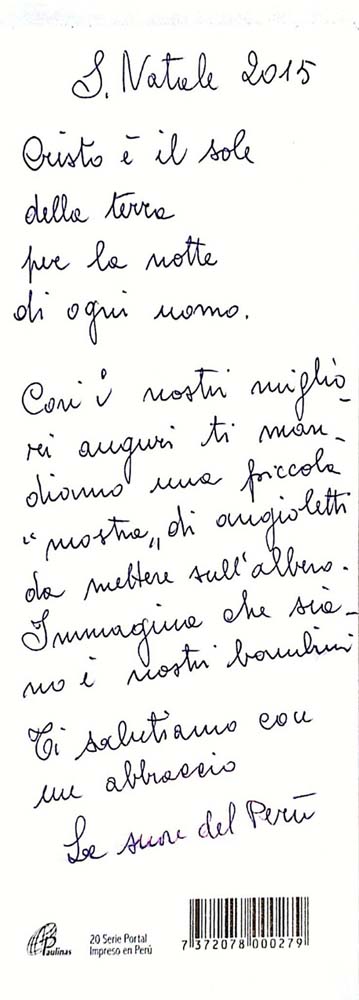 S. Natale 2015
Cristo è il sole
della terra
per la notte
di ogni uomo.
Con i nostri miglio_
ri auguri ti man_
diamo una piccola
“mostra„ di angioletti
da mettere sull'albero.
Immagina che sia_
no i nostri bambini
Ti salutiamo con
un abbraccio
Le suore del Perù
Paulinas
20 Serie Portal
Impreso en Perú
7 372078 000279